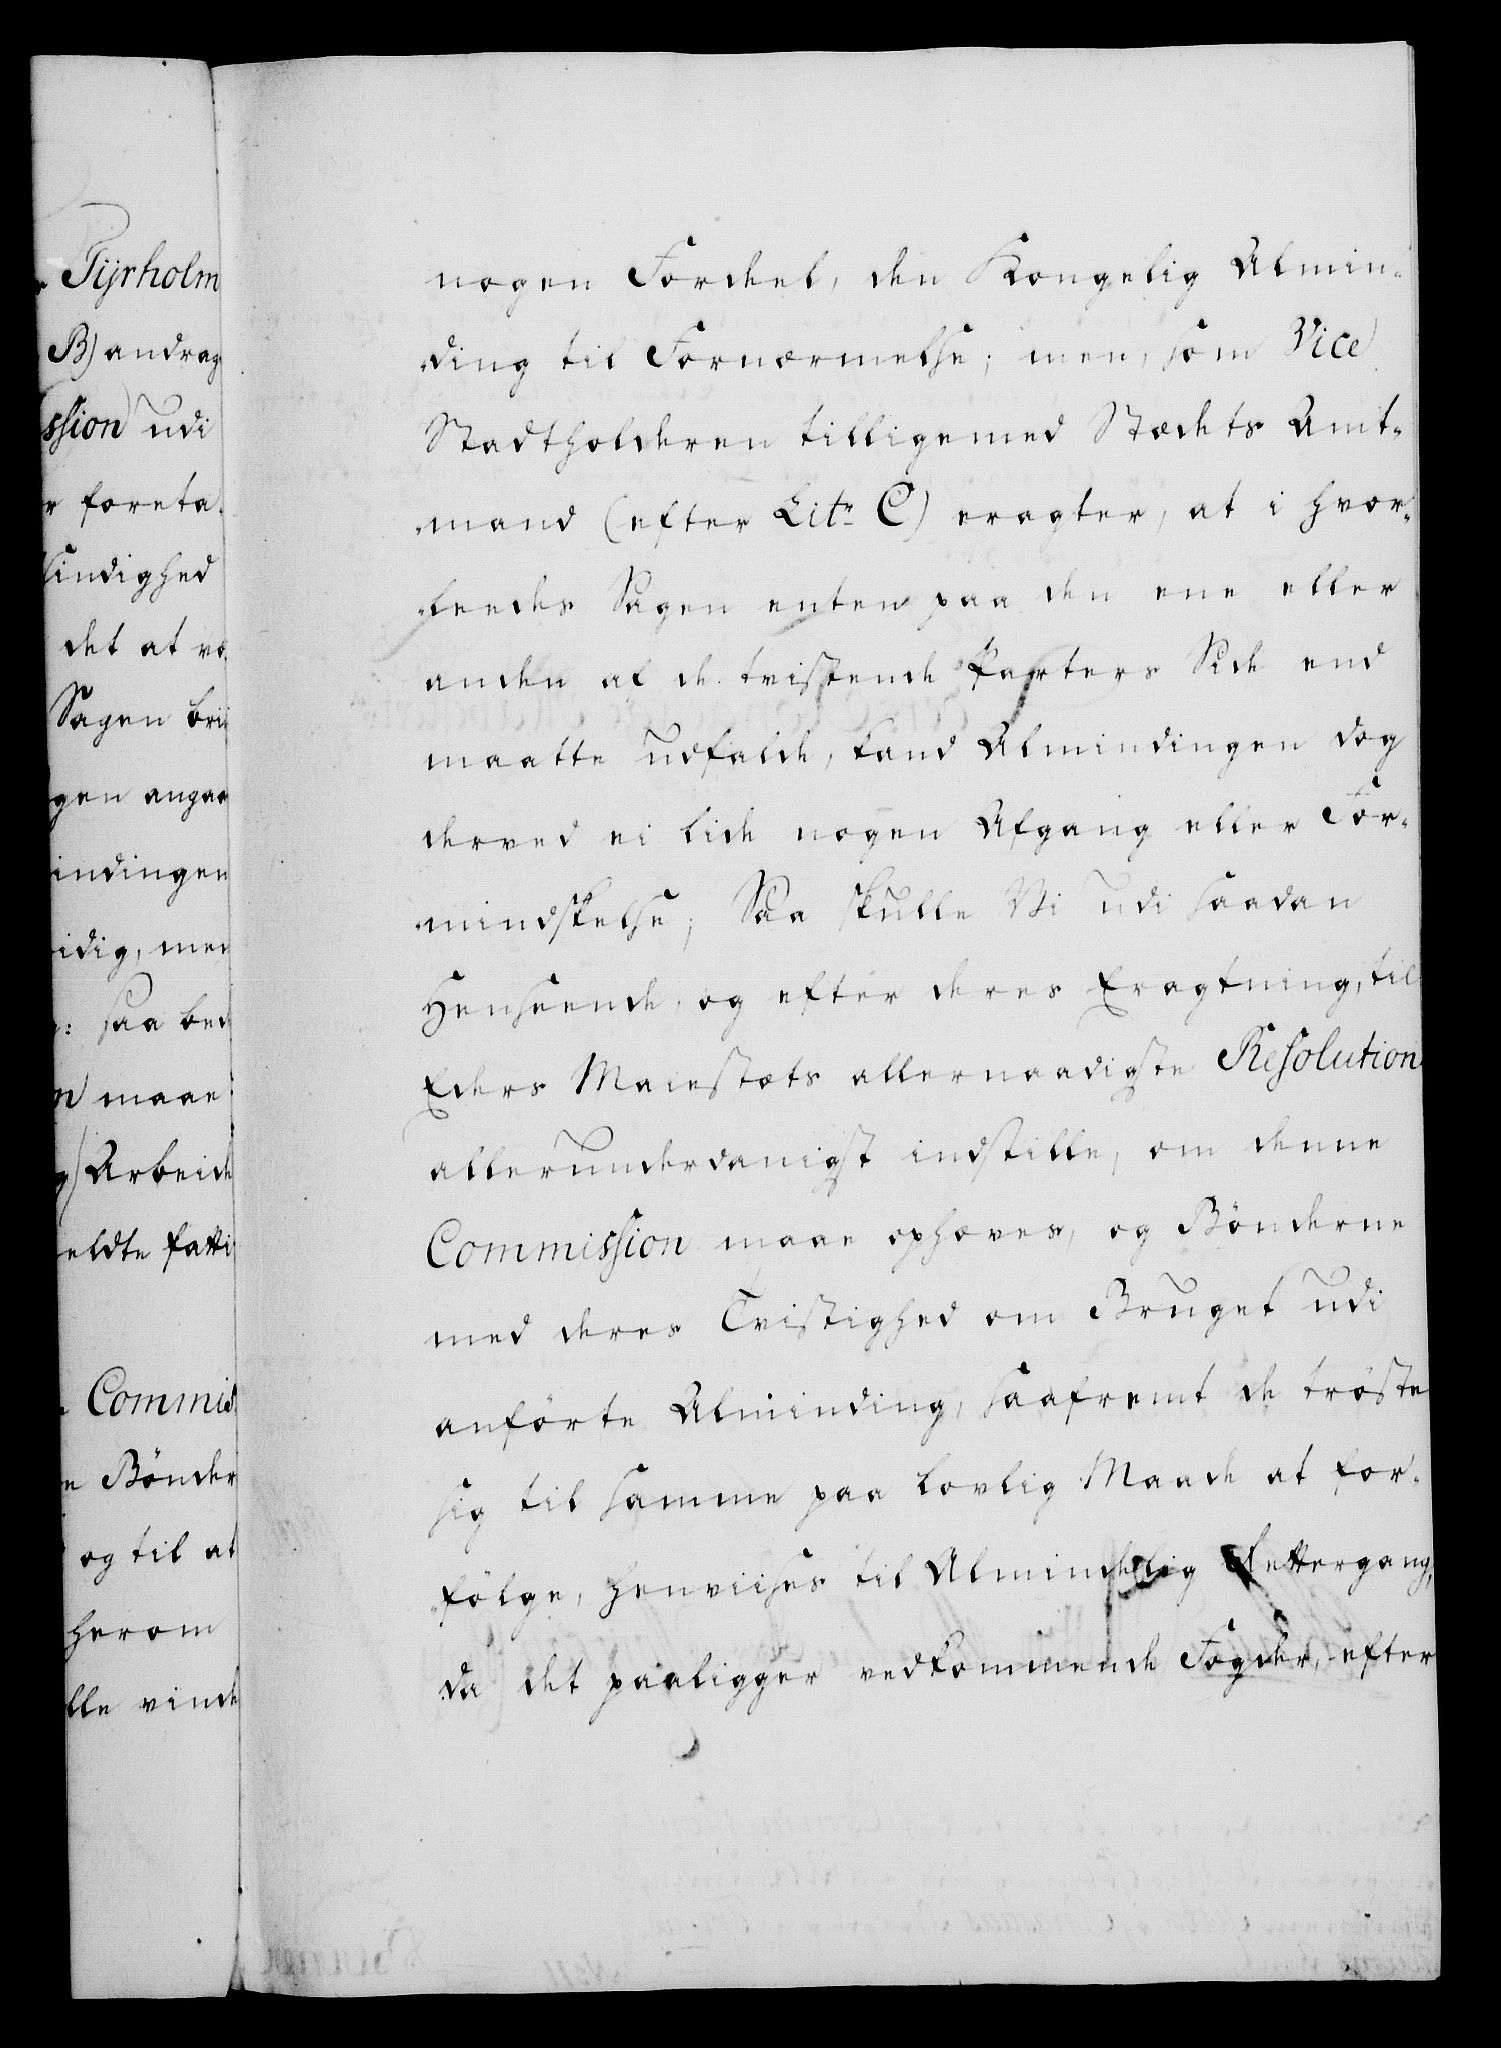 Tÿrholm
B) andrag
ssion udi
r foreta-
sindighed
det at væ
Sagen bri
gen angaa
indingen
idig, men
saa bed
n maae
g) Arbeide
eldte fatti
Commis
n Bönder
og til at
herom
lle vinde
nogen Fordeel, den Kongelig Almin-
-ding til Fornærmelse; men, som Vice
Stadtholderen tilligemed Stædets Amt-
-mand (efter Litr C) eragter, at i hvor-
-leedes Sagen enten paa den ene eller
anden af de tvistende Parters Side end
maatte udfalde, kand Almindingen dog
derved ei lide nogen Afgang eller For-
-mindskelse; Saa skulle Vi udi saadan
Henseende, og efter deres Eragtning, til
Eders Maiestæts allernaadigste Resolution
allerunderdanigst indstille, om denne
Commission maae ophæves, og Bönderne
med deres Tvistighed om Bruget udi
anförte Alminding, saafremt de tröste
sig til samme paa lovlig Maade at for-
-fölge, henviises til Almindelig Rettergang,
da det paaligger vedkommende Fogder, efter